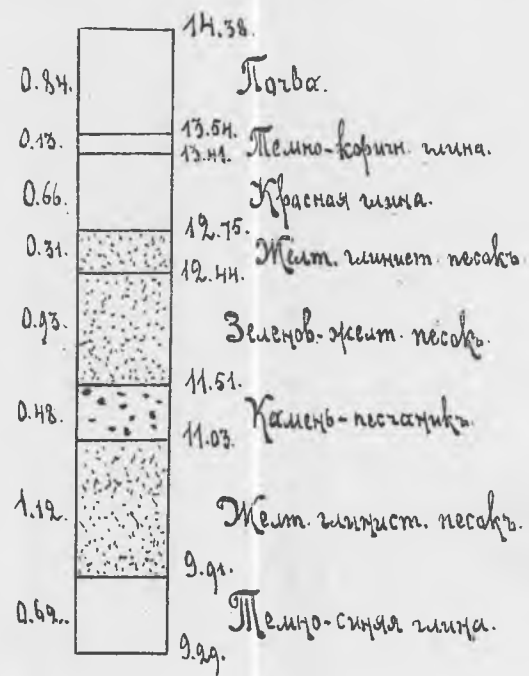 14.38.
0.84. Почва.
13.54.
0.13. Темно-коричн. глина.
13.41.
0.66. Красная глина.
12.75.
0.31. Желт. глинист. песокъ
12.44.
0.93. Зеленов.-желт. песокъ.
11.51.
0.48. Камень-песчаникъ.
11.03.
1.12. Желт. глинист. песокъ.
9.91.
0.62. Темно-синяя глина.
9.29.